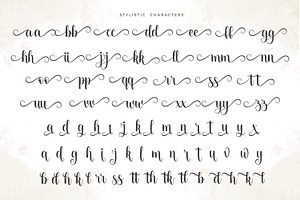 STYLISTIC CHARACTERS
aa bb cc dd ee ff gg
hh ii jj kk ll mm nn
oo pp qq rr ss tt
uu vv ww xx yy zz
a d g h i k l m n r t u y x
a d g h i k l m n r t u v w y
b d h k l rr ss tt th tk th b d h k l